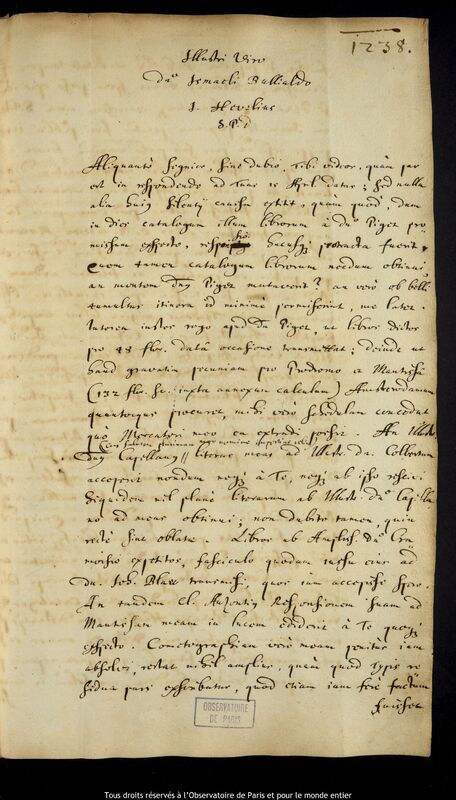 1238.
Illustri Viro
Dno Ismaeli Bullialdo
J. Hevelius
S. P. d
Aliquantò segnior, sine dubio, Tibi videor, quàm par
est in respondendo ad Tuas 15 Apl datas; sed nulla
alia hujus silentij causa extitit, quàm quòd, dum
in dies catalogum illum librorum à dno Piget pro
missum expecto, responsio hucusq; protracta fuerit,
quem tamen catalogum librorum necdum obtinui
an mentem dnus Piget mutaverit? an verò ob belli
tumultus itinera id minimè permiserint, me latet
Interea instes rogo apud Dn Piget, ut libros dictos
pro 48 flor. datâ occasione transmittat; deinde ut
haud gravatim pecuniam pro Prodromo et Mantissa
(132 flor. juxta annexum calculum) Amsterodamum
quantocyus procuret, mihi verò schedulam concedat
quò Mercatori meo ea extradi possit. An Illustr.
Dnus Capellanus literas meas ad Illustr. Dn. Colbertum
acceperit nondum neq; à Te, neq; ab ipso rescivi
siquidem nil planè literarum ab Illustr. Dno Capella
no ad meas obtinui; non dubito tamen, quin
rectè sint oblatæ. Libros ab Ampliss. Dno
expetitos, fasciculo quodam jussu ejus ad
Dn. Joh. Blaeu transmisi, quos jam accepisse spero.
An tandem Cl. Auzoutius Responsionem suam ad
Mantissam meam in lucem ediderit à Te quoq;
expecto. Cometographiam verò meam penitus jam
absolvi, restat nihil amplius, quàm quod typis re
sidua pars exscribatur, quod etiam jam ferè factum
fuisset
OBSERVATOIRE
DE PARIS
Tous droits réservés à l'Observatoire de Paris et pour le monde entier